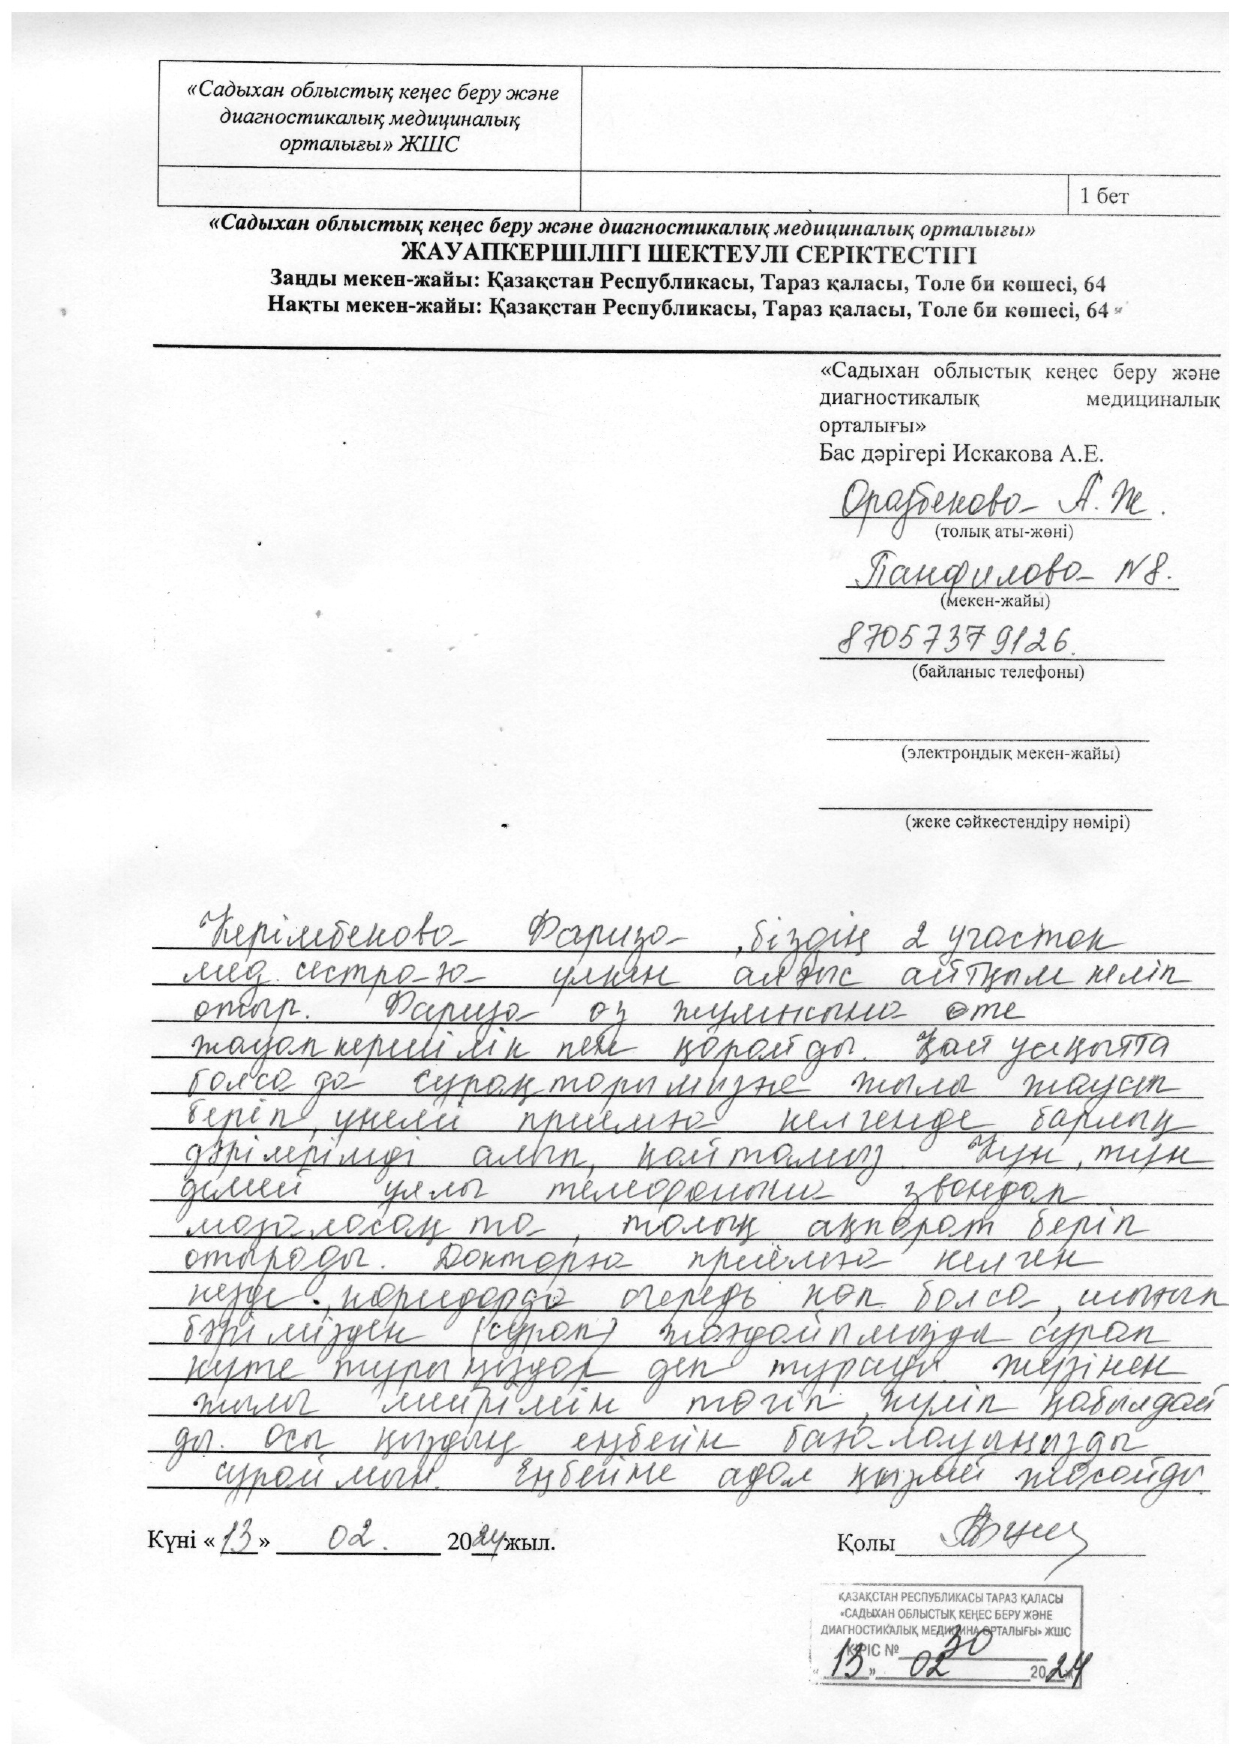 «Садыхан облыстық кеңес беру және
диагностикалық медициналық
орталығы» ЖШС
1 бет
«Садыхан облыстық кеңес беру және диагностикалық медициналық орталығы»
ЖАУАПКЕРШІЛІГІ ШЕКТЕУЛІ СЕРІКТЕСТІГІ
Заңды мекен-жайы: Қазақстан Республикасы, Тараз қаласы, Толе би көшесі, 64
Нақты мекен-жайы: Қазақстан Республикасы, Тараз қаласы, Толе би көшесі, 64
«Садыхан облыстық кеңес беру және
диагностикалық медициналық
орталығы»
Бас дәрігері Искакова А.Е.
Оразбекова А.Ж.
(толық аты-жөні)
Панфилова №8.
(мекен-жайы)
87057379126.
(байланыс телефоны)
(электрондық мекен-жайы)
(жеке сәйкестендіру нөмірі)
Керімбекова Фариза, біздің 2 участок
мед. сестраға үлкен алғыс айтқым келіп
отыр. Фариза өз жұмысына өте
жауапкершілік пен қарайды. Қай уақытта
болса да сұрақтарымызға жылы жауап
беріп, үнемі приемға келгенде барлық
дәрілерімді алып, қайтамыз. Күн, түн
демей ұялы телефонына звондап
мазаласақ та, толық ақпарат беріп
отырады. Докторға приёмға келген
кезде, коридорда очередь көп болса, шығып
бәрімізден (сұрап) жағдайымызды сұрап
күте тұрыңыздар деп тұрады. Жүзінен
жылы мейірімін төгіп, күліп қабылдай
ды. Осы қыздың еңбейін бағалауыңызды
сұраймын. Еңбейіне адал қызмей жасайды.
Күні « 13 » 02. 2024 жыл.
Қолы
ҚАЗАҚСТАН РЕСПУБЛИКАСЫ ТАРАЗ ҚАЛАСЫ
«САДЫХАН ОБЛЫСТЫҚ КЕҢЕС БЕРУ ЖӘНЕ
ДИАГНОСТИКАЛЫҚ МЕДИЦИНА ОРТАЛЫҒЫ» ЖШС
КІРІС № 30
« 13 » 02 2024 ж